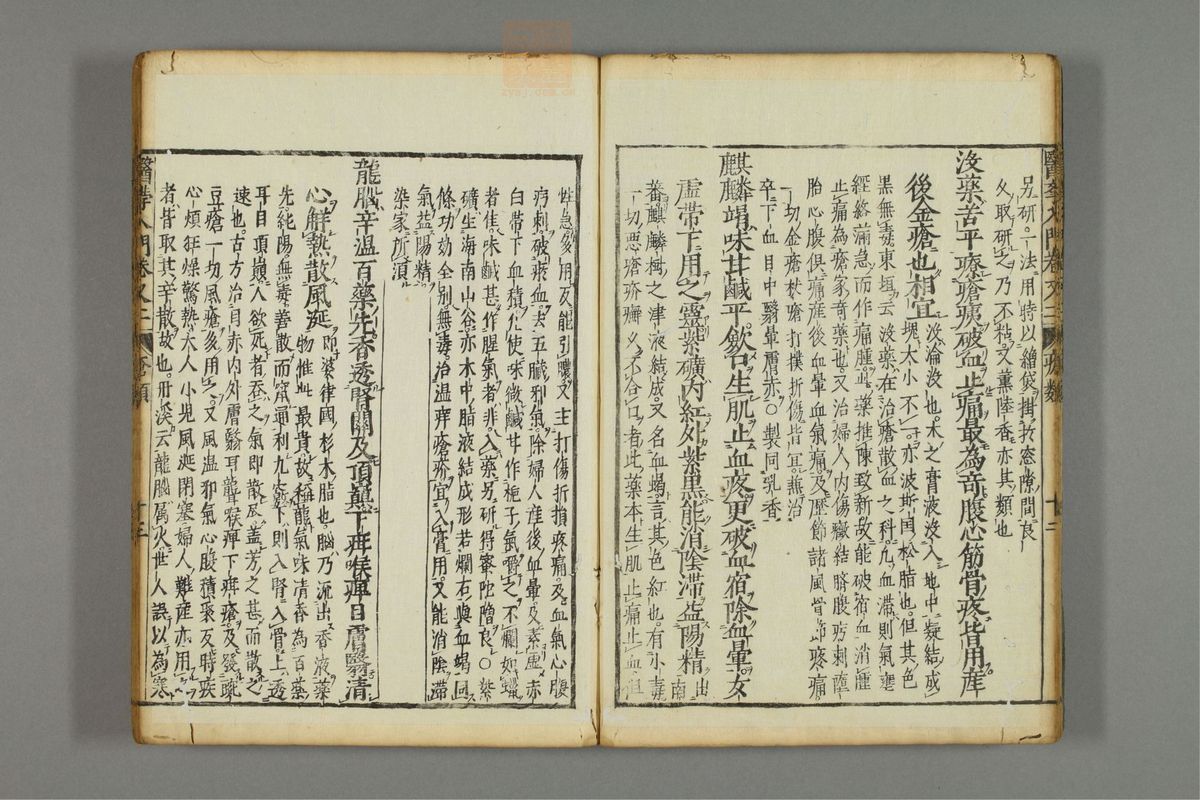 另研。一法用時以繒袋掛於窓隙間良
久取研之乃不粘。又薫陸香亦其類也
沒藥苦平療瘡瘍破血止痛最為奇腹心筋骨疼皆用産
後金瘡也相宜
沒淪沒也木之膏液沒入地中凝結成
塊大小不一亦波斯国松脂也。但其色
黒無毒東垣云沒藥在治瘡散血之科。凡血滞則氣壅
經絡滿急而作痛腫此藥推陳致新故能破宿血消腫
止痛為瘡家奇藥也。又治婦人内傷癥結臍腹疞刺墮
胎心腹俱痛産後血暈血氣痛及歴節諸風骨節疼痛
一切金瘡杖瘡打撲折傷皆宜。兼治
卒下血目中翳暈膚赤○製同乳香
麒麟竭味甘鹹平飲石生肌止血疼更破血宿除血暈女
虚帶下用之靈紫礦内紅外紫黒能消陰滞益陽精
出南
蕃麒麟樹之津液結成。又名血竭。言其色紅也。有小毒
一切悪瘡疥癬久不合口者此藥本生肌止痛止血
性急多用反能引膿又主打傷折損疼痛及血氣心腹
疞刺破瘀血。去五臟邪氣除婦人産後血暈及素虚赤
白帶下血積凡使味微鹹甘作梔子氣嚼之不爛如蠟
者佳味鹹甚作腥氣者非。入藥另研得蜜陀僧良○紫
礦生海南山谷亦木中脂液結成形若爛石與血竭同
條功効全別無毒。治温痒瘡疥宜入膏用又能消陰滞
氣益陽精。
染家所須
龍脳辛温百藥先香透腎關及頂巔下疳喉痺目膚翳清
心解熱散風涎
即婆律國杉木脂也。脳乃流出香液藥
物惟此最貴故稱龍氣味清香為百藥
先純陽無毒善散而竄通利九竅下則入腎入骨上透
耳目頂巔人欲死者吞之氣即散尽盖芳之甚而散之
速也。古方治目赤内外膚翳耳聾喉痺下疳瘡。及發
豆瘡一切風瘡多用之。又風温邪氣心腹積聚及時疾
心煩狂燥驚熱。大人小児風涎閉塞婦人難産亦用
者、昔取其辛散故也。丹溪云龍脳属火世人誤以為寒